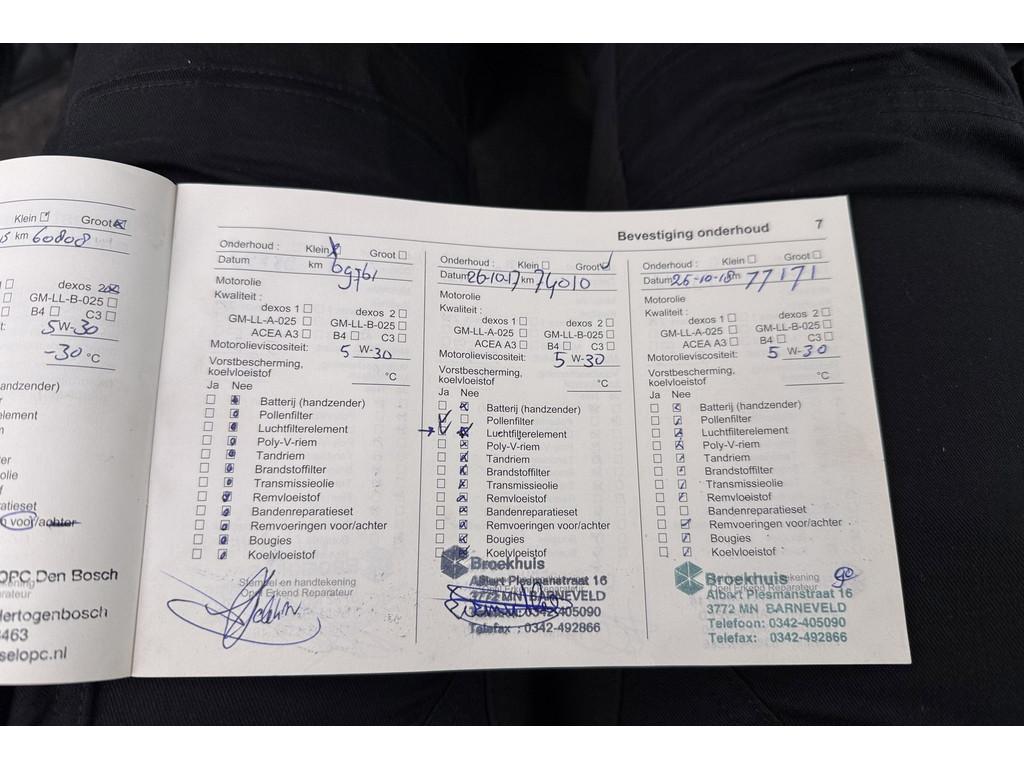 Klein Groot
km 60808
dexos 2
GM-LL-B-025
B4 C3
5W-30
-30 °C
andzender)
element
olie
n voor/achter
OPC Den Bosch
463
selopc.nl
Bevestiging onderhoud 7
Onderhoud : Klein Groot
Datum km 69761
Motorolie
Kwaliteit :
dexos 1 dexos 2
GM-LL-A-025 GM-LL-B-025
ACEA A3 B4 C3
Motorolieviscositeit: 5 W-30
Vorstbescherming,
koelvloeistof °C
Ja Nee
Batterij (handzender)
Pollenfilter
Luchtfilterelement
Poly-V-riem
Tandriem
Brandstoffilter
Transmissieolie
Remvloeistof
Bandenreparatieset
Remvoeringen voor/achter
Bougies
Koelvloeistof
Stempel en handtekening
Opel Erkend Reparateur
Onderhoud : Klein Groot
Datum 26-10-17 km 74010
Motorolie
Kwaliteit :
dexos 1 dexos 2
GM-LL-A-025 GM-LL-B-025
ACEA A3 B4 C3
Motorolieviscositeit: 5 W-30
Vorstbescherming,
koelvloeistof °C
Ja Nee
Batterij (handzender)
Pollenfilter
Luchtfilterelement
Poly-V-riem
Tandriem
Brandstoffilter
Transmissieolie
Remvloeistof
Bandenreparatieset
Remvoeringen voor/achter
Bougies
Koelvloeistof
Broekhuis
Albert Plesmanstraat 16
3772 MN BARNEVELD
0342-405090
Telefax : 0342-492866
Onderhoud : Klein Groot
Datum 26-10-18 km 77171
Motorolie
Kwaliteit :
dexos 1 dexos 2
GM-LL-A-025 GM-LL-B-025
ACEA A3 B4 C3
Motorolieviscositeit: 5 W-30
Vorstbescherming,
koelvloeistof °C
Ja Nee
Batterij (handzender)
Pollenfilter
Luchtfilterelement
Poly-V-riem
Tandriem
Brandstoffilter
Transmissieolie
Remvloeistof
Bandenreparatieset
Remvoeringen voor/achter
Bougies
Koelvloeistof
Broekhuis
Albert Plesmanstraat 16
3772 MN BARNEVELD
Telefoon: 0342-405090
Telefax: 0342-492866